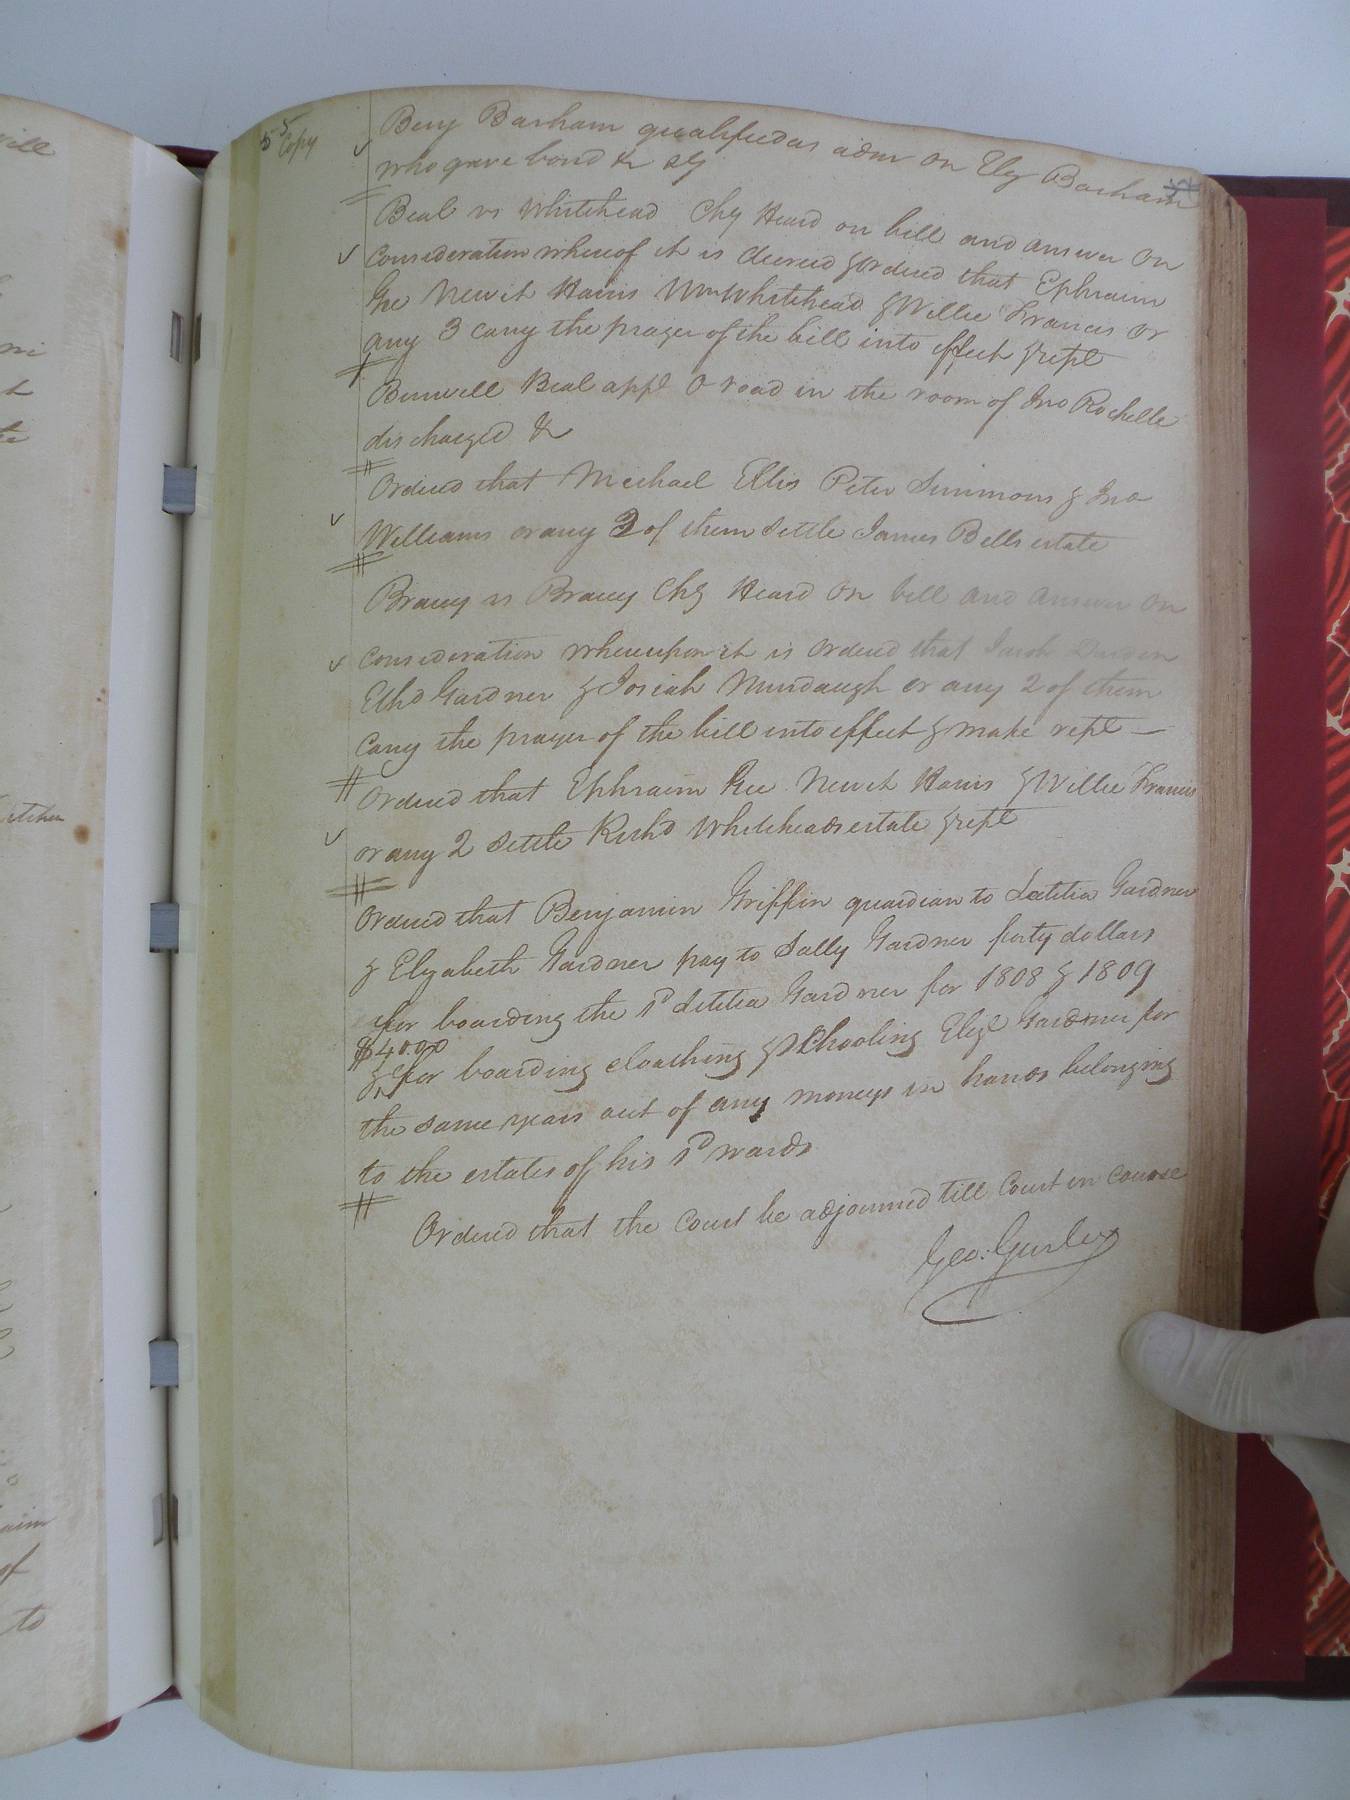 5 5 Copy
Benj Barham qualified as adm on Eliz Barham
who gave bond &c sg
Beal vs Whitehead Chy Heard on bill and answer On
consideration whereof it is decreed & Ordered that Ephraim
Gee Newit Harris Wm Whitehead & Willie Francis or
any 3 carry the prayer of the bill into effect & rept
Burwell Beal appd O road in the room of Jno Rochelle
discharged &c
Ordered that Michael Ellis Peter Simmons & Jno
Williams or any 2 of them settle James Bells estate
Bracey vs Bracey Chy Heard On bill and answer On
consideration whereupon it is Ordered that Jacob Darden
Ethd Gardner & Josiah Murdaugh or any 2 of them
carry the prayer of the bill into effect & make rept —
Ordered that Ephraim Gee Newit Harris & Willie Francis
or any 2 settle Richd Whiteheads estate & rept
Ordered that Benjamin Griffin guardian to Letitia Gardner
& Elizabeth Gardner pay to Sally Gardner forty dollars
for boarding the sd Letitia Gardner for 1808 & 1809
$40.00
& for boarding cloathing & schooling Eliz Gardner for
the same years out of any moneys in hands belonging
to the estates of his sd wards
Ordered that the Court be adjourned till Court in course
Geo: Gurley
will
to
of
to